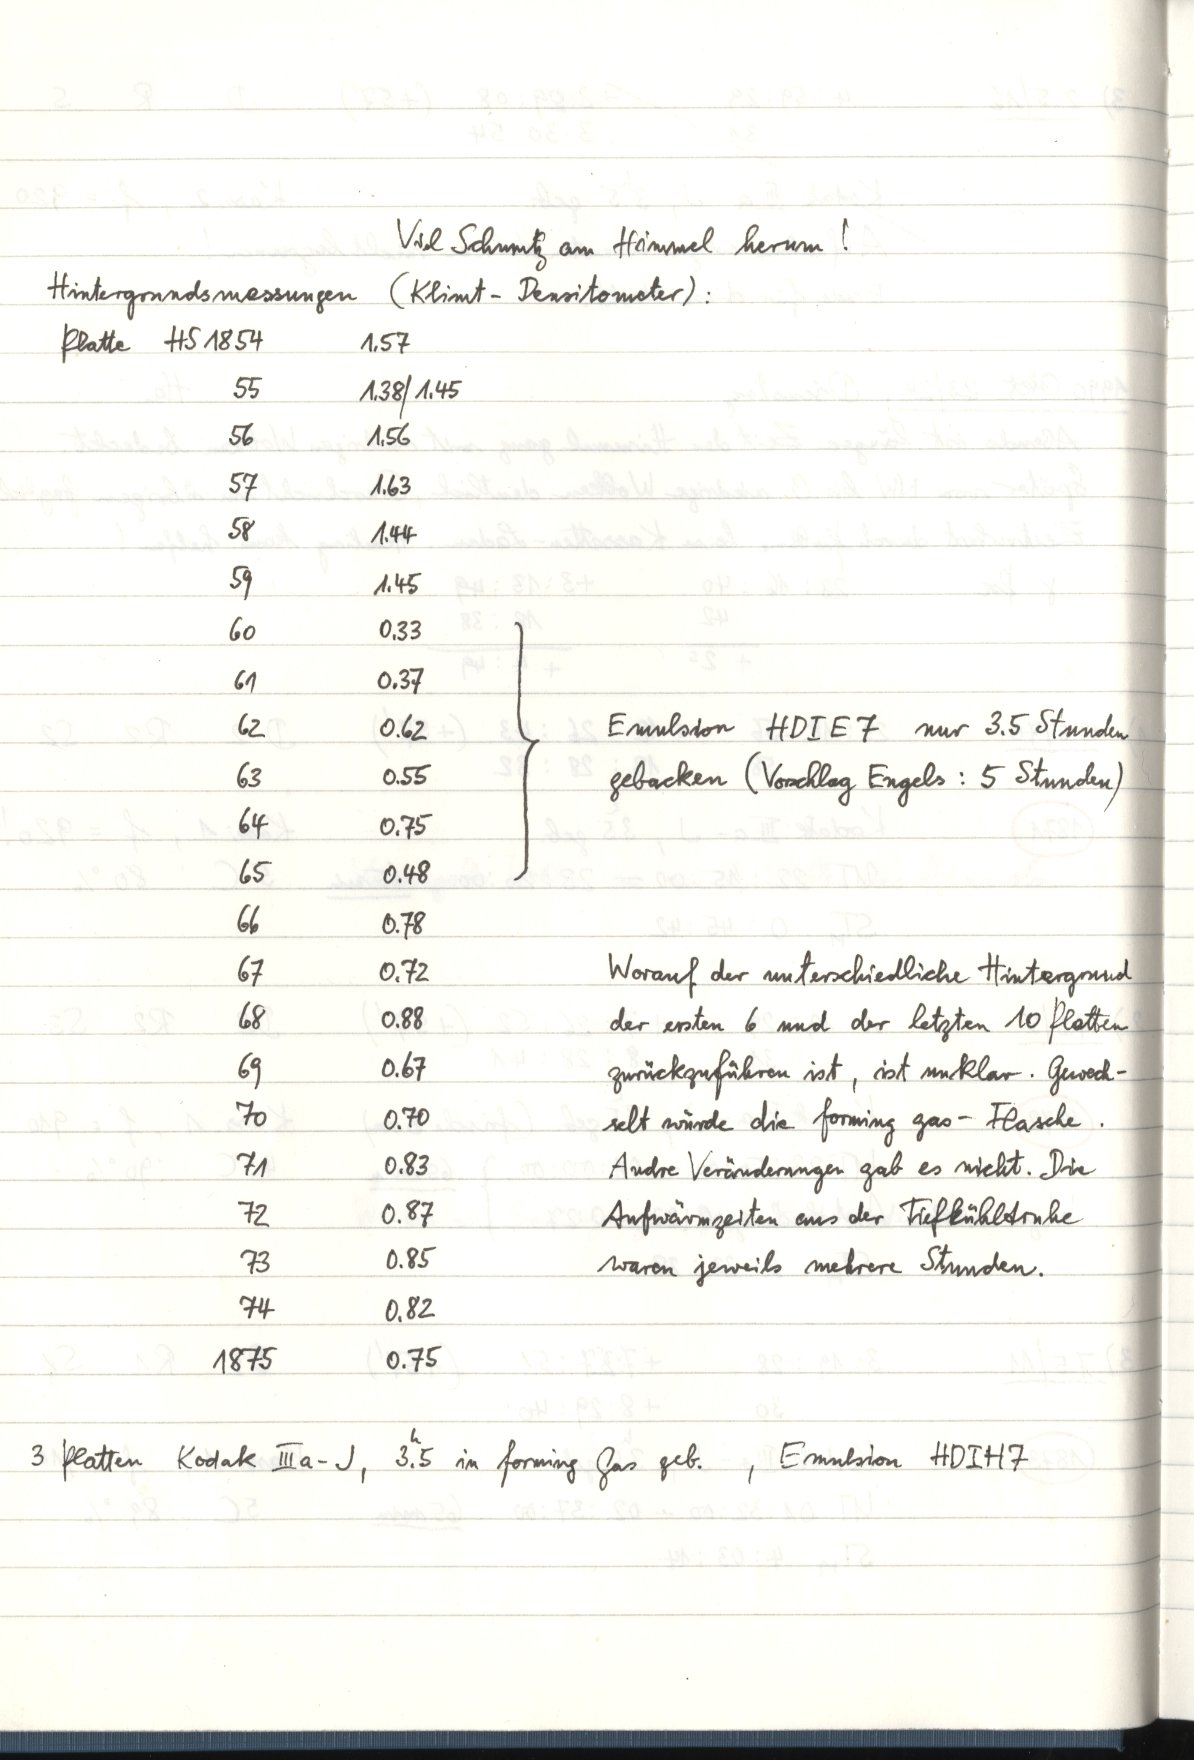 Viel Schmutz am Himmel herum!
Hintergrundsmessungen (Klimt-Densitometer):
Platte HS 1854 1.57
55 1.38/1.45
56 1.56
57 1.63
58 1.44
59 1.45
60 0.33
61 0.37
62 0.62 Emulsion HDIE7 nur 3.5 Stunden
63 0.55 gebacken (Vorschlag Engels: 5 Stunden)
64 0.75
65 0.48
66 0.78
67 0.72 Worauf der unterschiedliche Hintergrund
68 0.88 der ersten 6 und der letzten 10 Platten
69 0.67 zurückzuführen ist, ist unklar. Gewech-
70 0.70 selt wurde die forming gas-Flasche.
71 0.83 Andre Veränderungen gab es nicht. Die
72 0.87 Aufwärmzeiten aus der Tiefkühltruhe
73 0.85 waren jeweils mehrere Stunden.
74 0.82
1875 0.75
3 Platten Kodak IIIa-J, 3ʰ.5 in forming Gas geb., Emulsion HDIH7